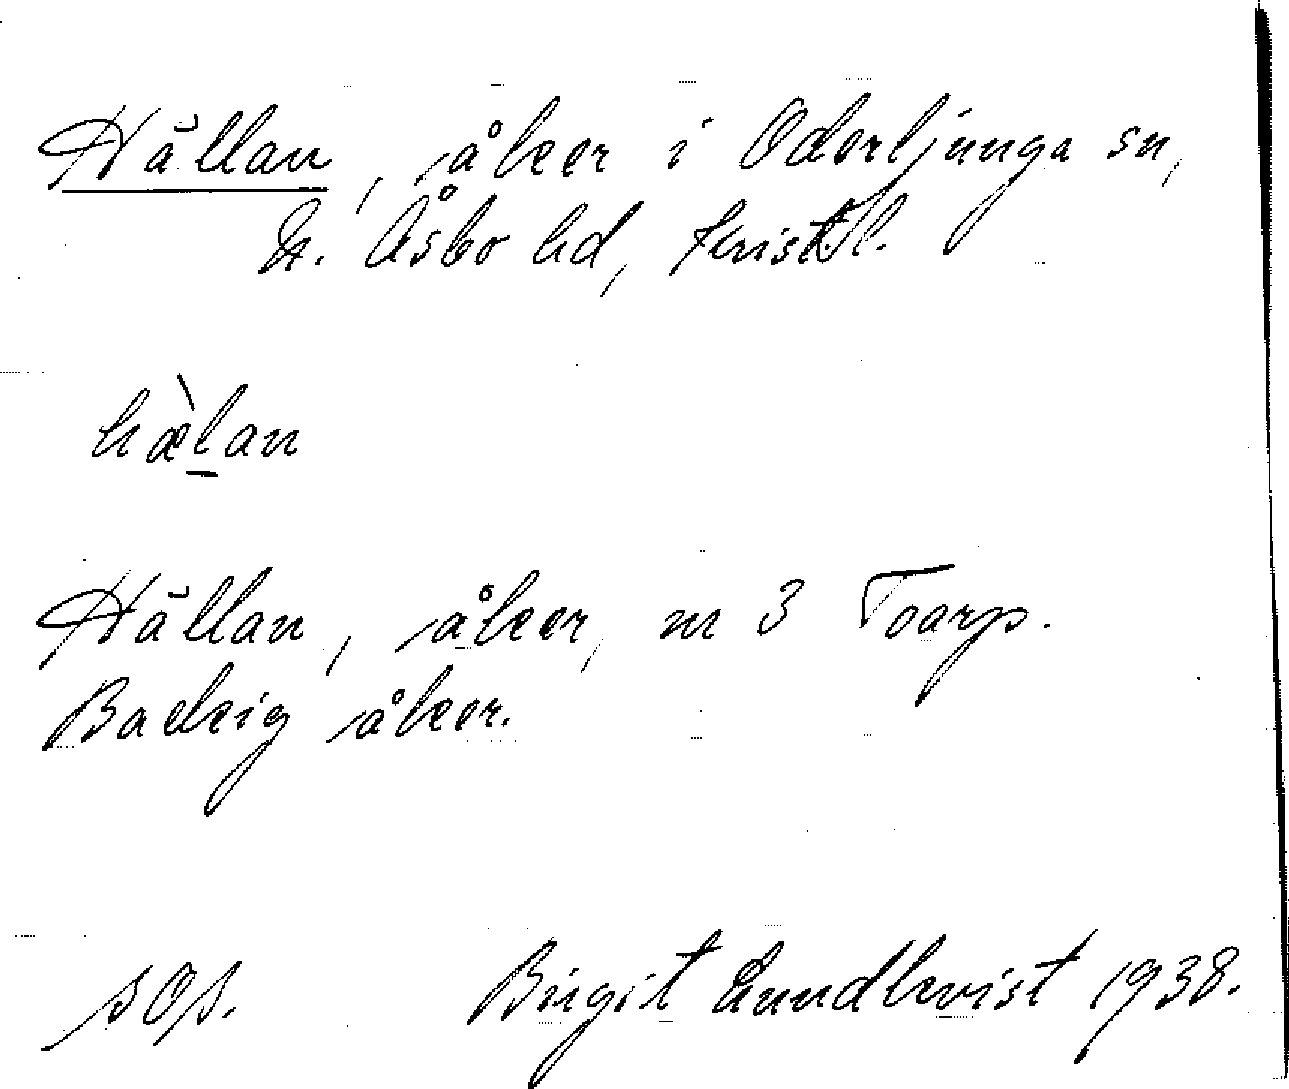 Hällan, åker i Oderljunga sn,
N. Åsbo hd, Krist. l.
hæ̀lan
Hällan, åker, nr 3 Toarp.
Backig åker.
sOs.
Birgit Lundkvist 1938.